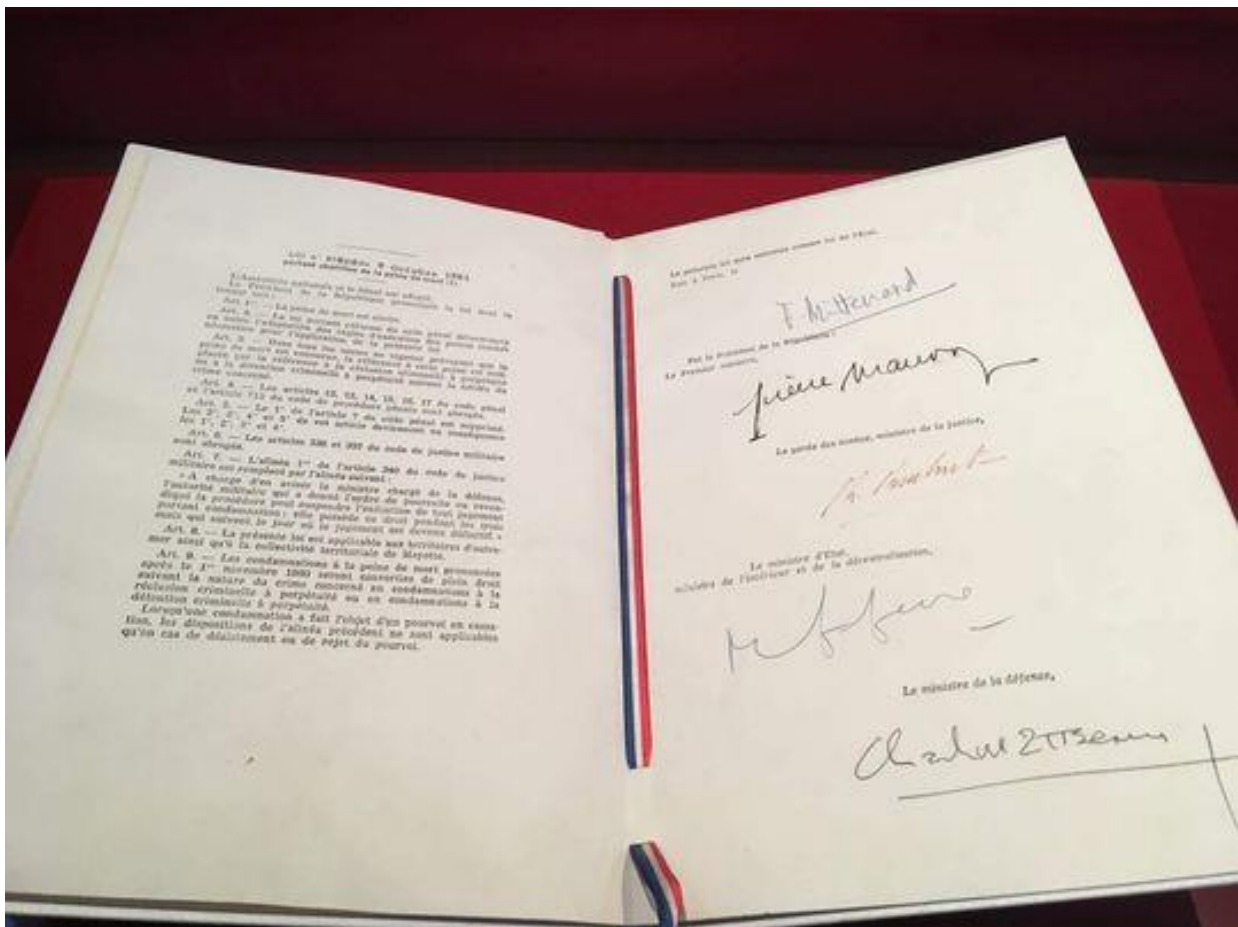 Loi n° 9 Octobre 1981
portant abolition de la peine de mort (1).
L'Assemblée nationale et le Sénat ont adopté,
Le Président de la République promulgue la loi dont la
teneur suit :
Art. 1er. — La peine de mort est abolie.
Art. 2. — La loi portant réforme du code pénal déterminera
en outre l'adaptation des règles d'exécution des peines rendue
nécessaire pour l'application de la présente loi.
Art. 3. — Dans tous les textes en vigueur prévoyant que la
peine de mort est encourue, la référence à cette peine est rem-
placée par la référence à la réclusion criminelle à perpétuité
ou à la détention criminelle à perpétuité suivant la nature du
crime concerné.
Art. 4. — Les articles 12, 13, 14, 15, 16, 17 du code pénal
et l'article 713 du code de procédure pénale sont abrogés.
Art. 5. — Le 1° de l'article 7 du code pénal est supprimé.
Les 2°, 3°, 4° et 5° de cet article deviennent en conséquence
les 1°, 2°, 3° et 4°.
Art. 6. — Les articles 336 et 337 du code de justice militaire
sont abrogés.
Art. 7. — L'alinéa 1er de l'article 340 du code de justice
militaire est remplacé par l'alinéa suivant :
« A charge d'en aviser le ministre chargé de la défense,
l'autorité militaire qui a donné l'ordre de poursuite ou reven-
diqué la procédure peut suspendre l'exécution de tout jugement
portant condamnation ; elle possède ce droit pendant les trois
mois qui suivent le jour où le jugement est devenu définitif. »
Art. 8. — La présente loi est applicable aux territoires d'outre-
mer ainsi qu'à la collectivité territoriale de Mayotte.
Art. 9. — Les condamnations à la peine de mort prononcées
après le 1er novembre 1980 seront converties de plein droit
suivant la nature du crime concerné en condamnations à la
réclusion criminelle à perpétuité ou en condamnations à la
détention criminelle à perpétuité.
Lorsqu'une condamnation a fait l'objet d'un pourvoi en cassa-
tion, les dispositions de l'alinéa précédent ne sont applicables
qu'en cas de désistement ou de rejet du pourvoi.
La présente loi sera exécutée comme loi de l'Etat.
Fait à Paris, le
F. Mitterrand
Par le Président de la République :
Le Premier ministre,
Pierre Mauroy
Le garde des sceaux, ministre de la justice,
Le ministre d'Etat,
ministre de l'intérieur et de la décentralisation,
Le ministre de la défense,
Charles